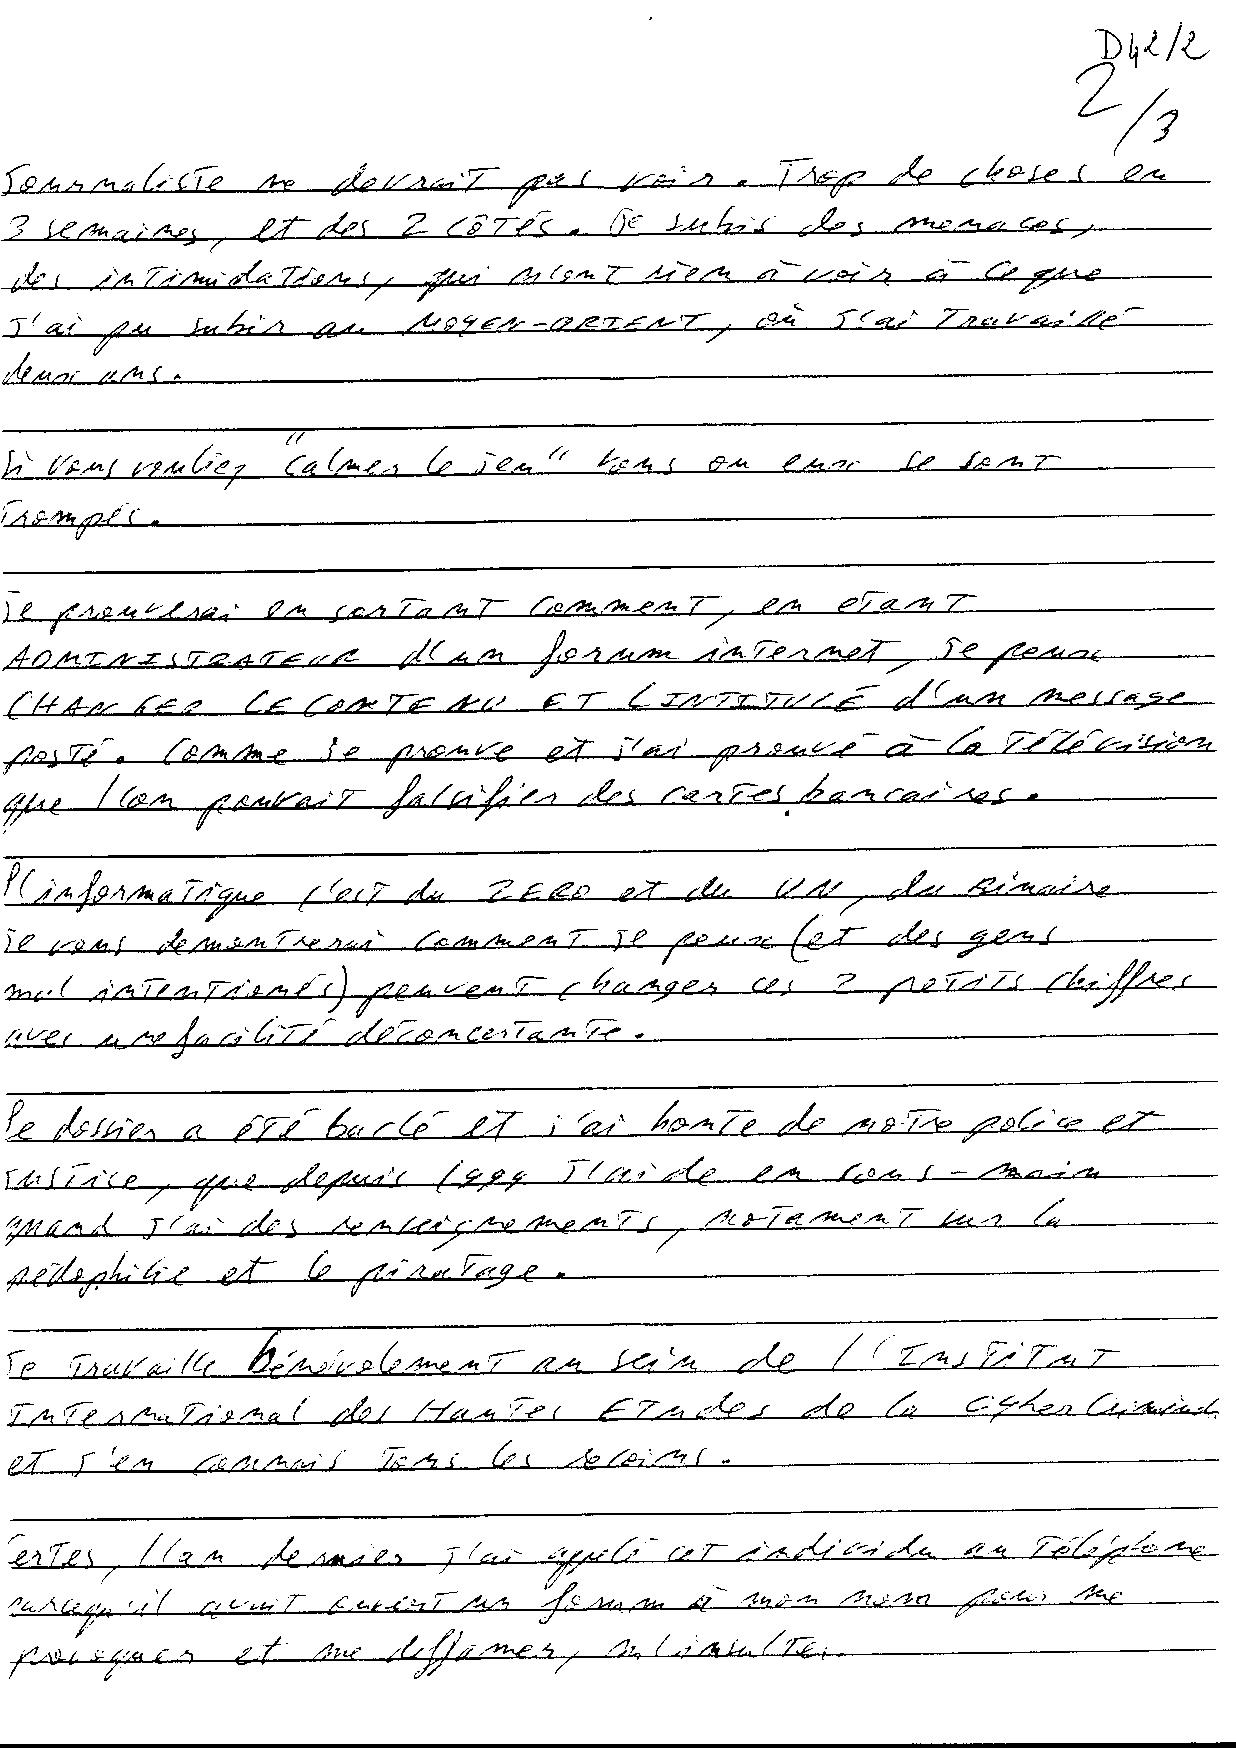 D42/2
2/3
Journaliste ne devrait pas voir. Trop de choses en
3 semaines, et des 2 côtés. Je subis des menaces,
des intimidations, qui n'ont rien à voir à ce que
j'ai pu subir au MOYEN-ORIENT, où j'ai travaillé
deux ans.
Si vous vouliez "calmer le jeu" vous ou eux se sont
trompés.
Je prouverai en sortant comment, en etant
ADMINISTRATEUR d'un forum internet, je peux
CHANGER LE CONTENU ET L'INTITULÉ d'un message
posté. Comme je prouve et j'ai prouvé à la télévision
que l'on pouvait falsifier des cartes bancaires.
L'informatique c'est du ZERO et du UN, du Binaire
je vous demontrerai comment je peux (et des gens
mal intentionés) peuvent changer ces 2 petits chiffres
avec une facilité déconcertante.
Le dossier a été baclé et j'ai honte de notre police et
justice, que depuis 1999 j'aide en sous-main
quand j'ai des renseignements, notament sur la
pédophilie et le piratage.
Je travaille bénévolement au sein de l'Institut
International des Hautes Etudes de la CyberCriminal
et j'en connais tous les recoins.
Certes, l'an dernier j'ai appelé cet individu au téléphone
parcequ'il avait ouvert un forum à mon nom pour me
provoquer et me diffamer, m'insulter.